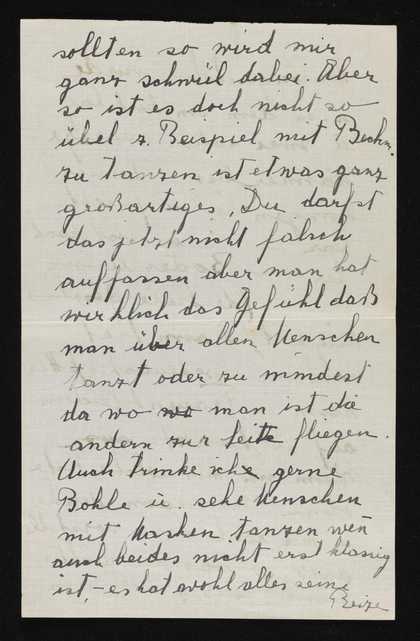 sollten so wird mir
ganz schwül dabei. Aber
so ist es doch nicht so
übel z. Beispiel mit Beckm.
zu tanzen ist etwas ganz
großartiges, Du darfst
das jetzt nicht falsch
auffassen aber man hat
wirklich das Gefühl daß
man über allen Menschen
tanzt oder zu mindest
da wo wo man ist die
andern zur Seite fliegen.
Auch trinke ich gerne
Bohle u. sehe Menschen
mit Masken tanzen wen̄
auch beides nicht erst klassig
ist, - es hat wohl alles seine
Reize